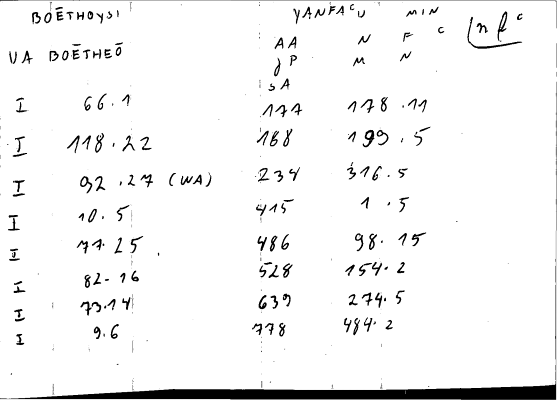 BOĒTHOYSI VANFACU MIN n f c
AA N F C
VA BOĒTHEŌ JP M N
SA
I 66.1 177 178.11
I 118.22 168 199.5
I 92.27 (WA) 234 316.5
I 10.5 415 1.5
II 77.25 486 98.15
I 82-16 528 154.2
I 73.14 639 274.5
I 9.6 778 484.2